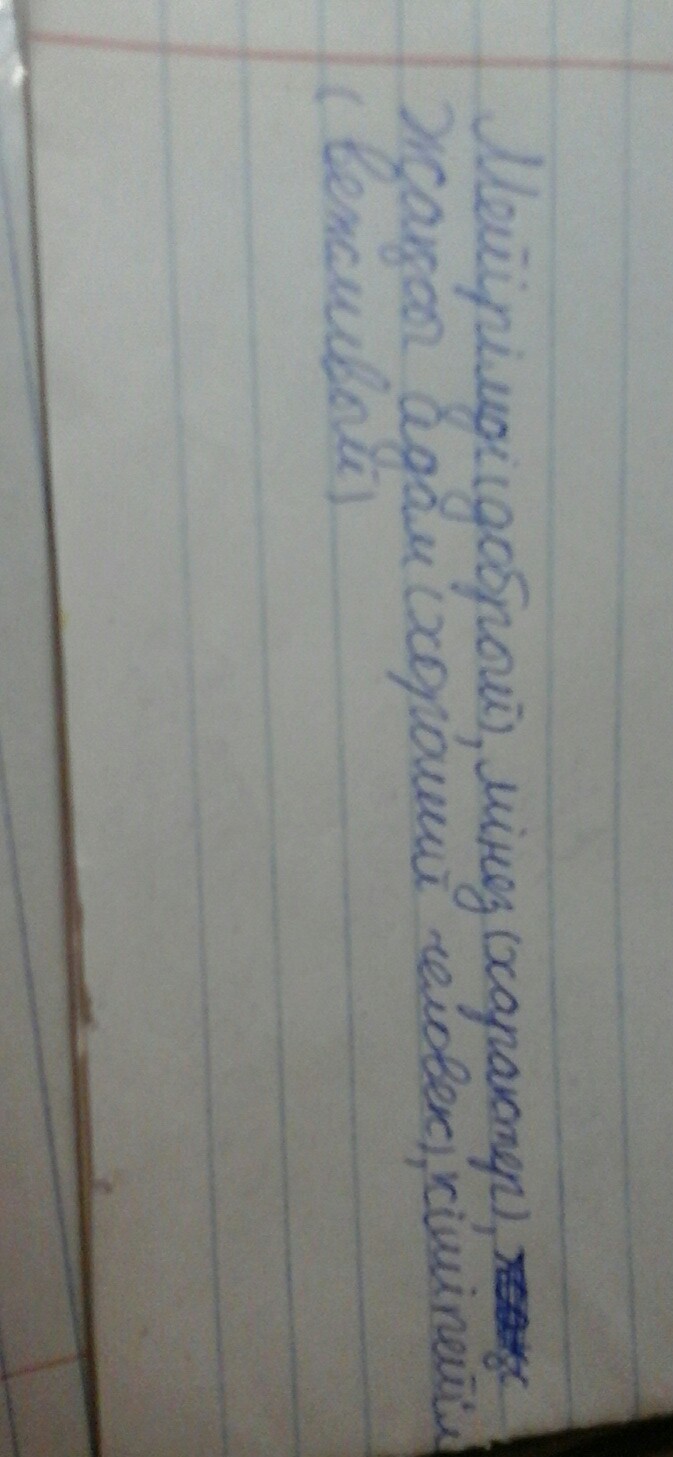 Мейірімді (добрый), мінез (характер),
жақсы адам (хороший человек), кішіпейіл
(вежливый)